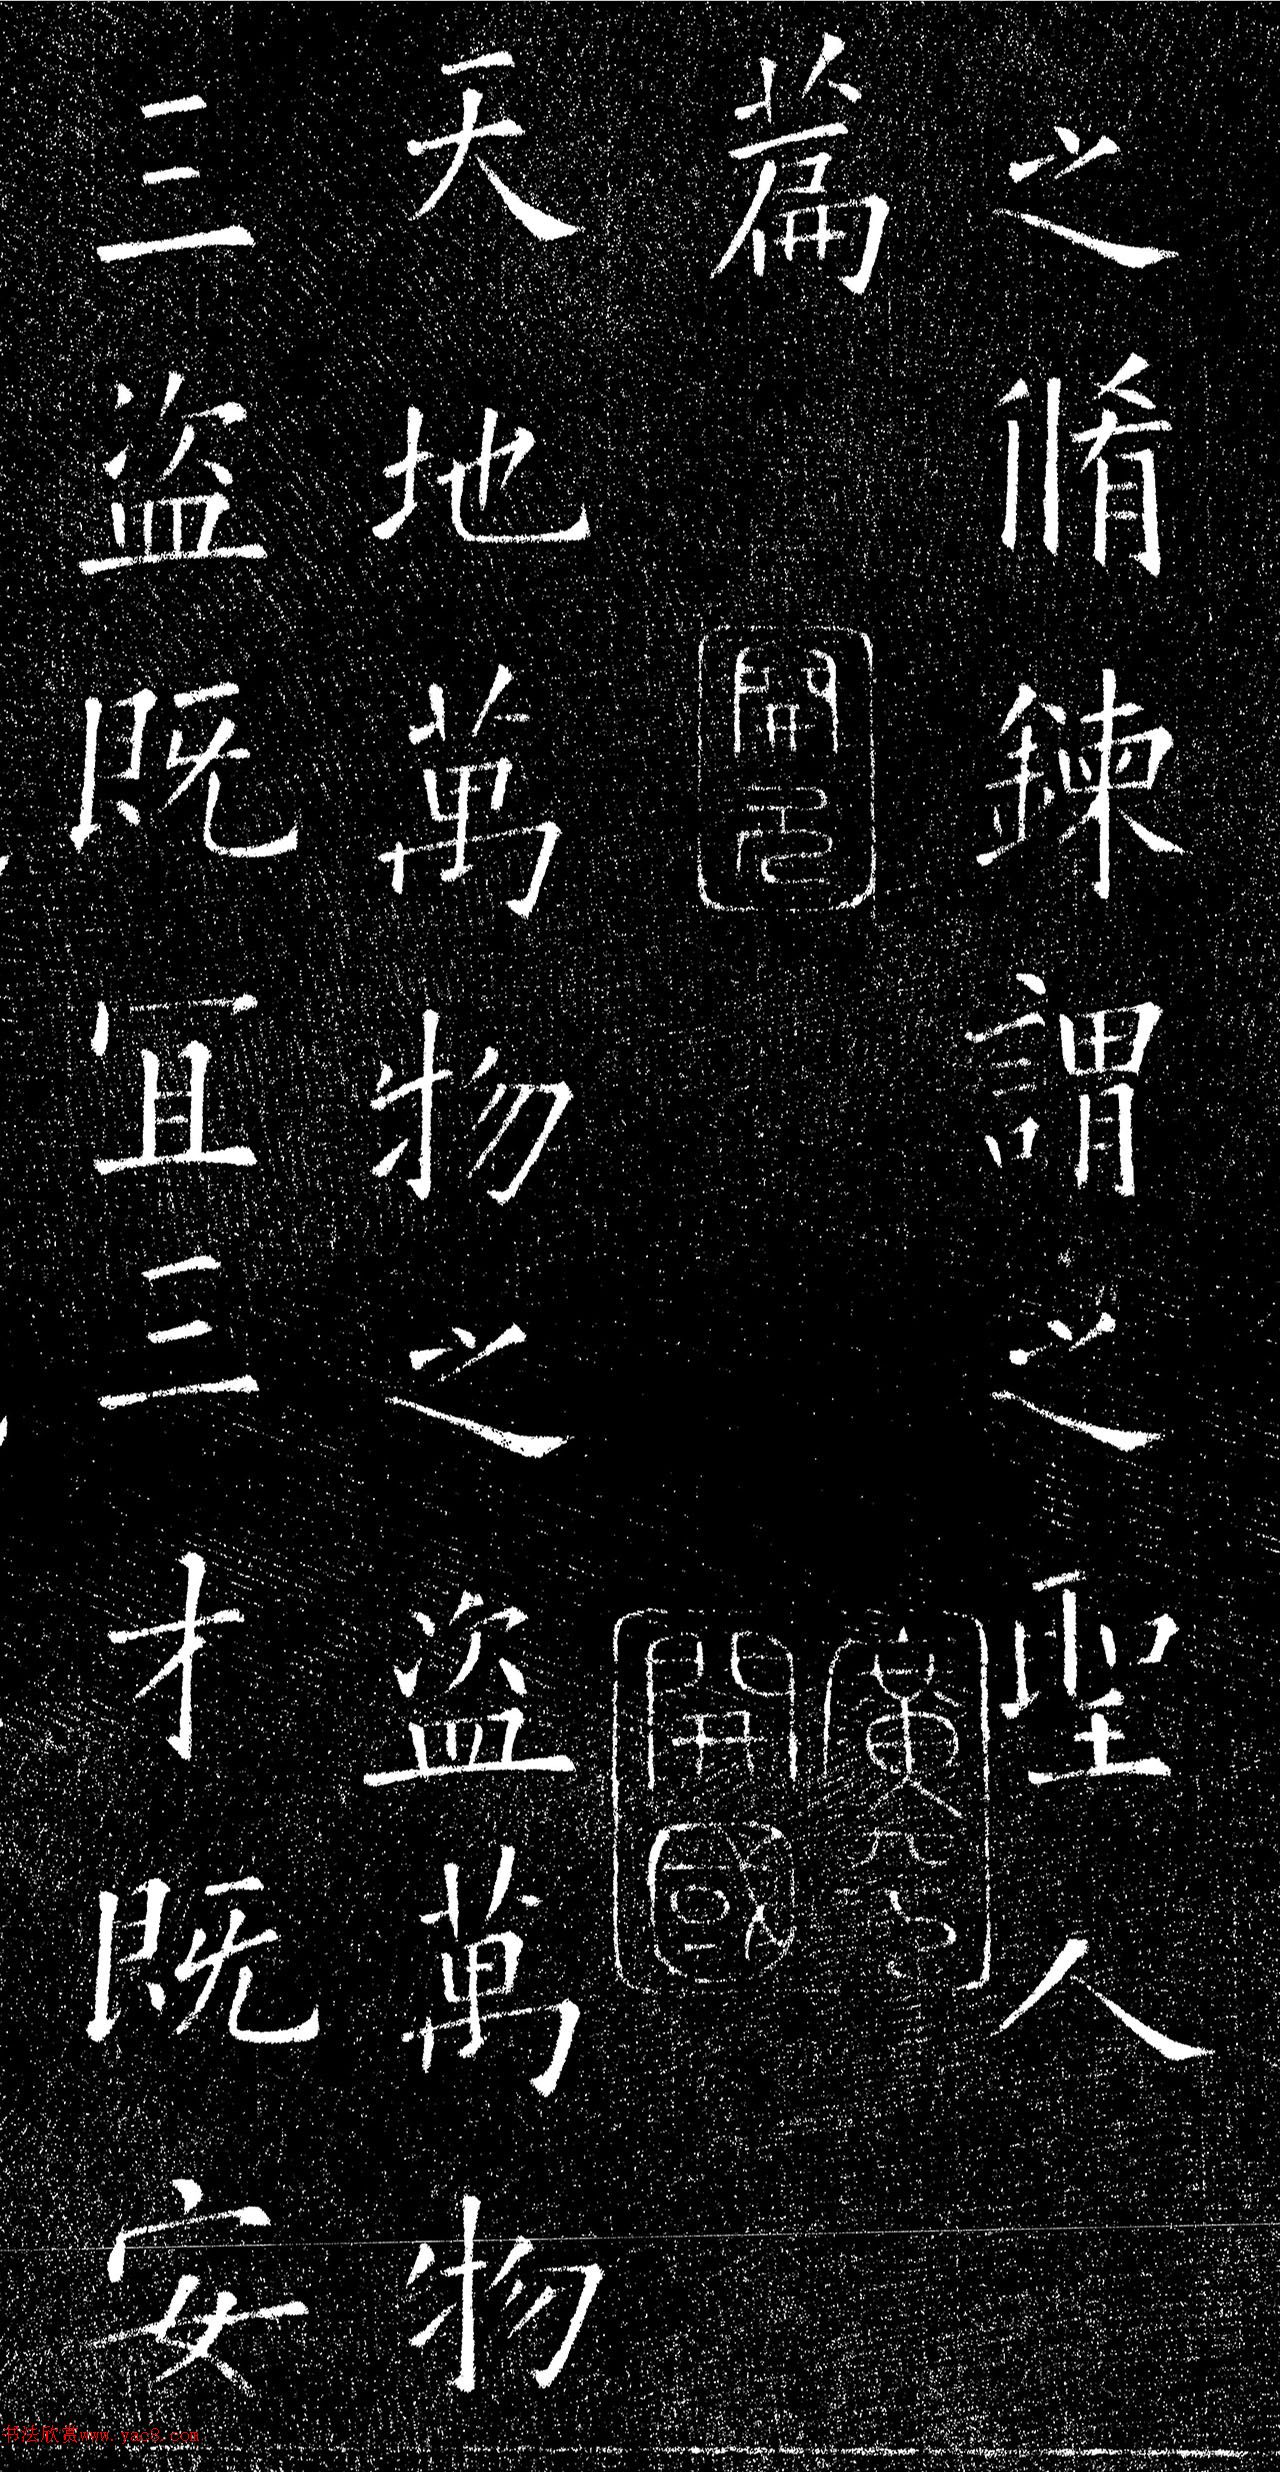 之脩鍊謂之聖人
篇
開元
開國
天地萬物之盜萬物
三盜既冝三才既安
书法欣赏www.yac8.com